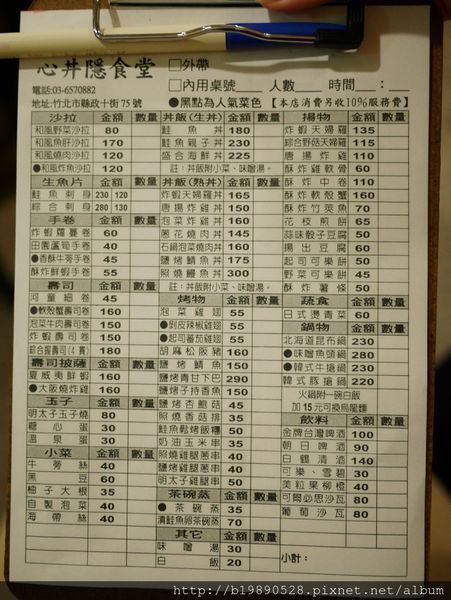 心丼隱食堂
□外帶
電話:03-6570882
□內用桌號 人數 時間 :
地址:竹北市縣政十街75號
●黑點為人氣菜色【本店消費另收10%服務費】
沙拉 金額 數量
和風野菜沙拉 80
和風魚肝沙拉 170
和風燒肉沙拉 120
●和風炸魚沙拉 120
生魚片 金額 數量
鮭魚刺身 230 120
綜合刺身 280 130
手卷 金額 數量
炸蝦蘿蔓卷 60
田園蘆筍手卷 40
●香酥牛蒡手卷 45
酥炸鮮蝦手卷 60
壽司 金額 數量
河童細卷 45
●軟殼蟹壽司卷 160
泡菜牛肉壽司卷 150
炸蝦壽司卷 150
綜合握壽司(4貫) 180
壽司披薩 金額 數量
夏威夷鮮蝦 160
●大阪燒炸雞 160
玉子 金額 數量
明太子玉子燒 80
糖心蛋 30
溫泉蛋 30
小菜 金額 數量
牛蒡絲 40
黑豆 60
柚子大根 35
自製泡菜 40
海帶絲 40
丼飯(生丼) 金額 數量
鮭魚丼 180
鮭魚親子丼 230
盛合海鮮丼 225
註:丼飯附小菜、味噌湯。
丼飯(熟丼) 金額 數量
炸蝦天婦羅丼 165
唐揚炸雞丼 150
泡菜炸雞丼 160
蔥花燒肉丼 145
石鍋泡菜燒肉丼 160
鹽烤鯖魚丼 175
照燒鰻魚丼 300
註:丼飯附小菜、味噌湯。
烤物 金額 數量
泡菜雞翅 55
●剝皮辣椒雞翅 55
●起司蕃茄雞翅 55
胡麻松阪豬 160
鹽烤鯖魚 150
鹽烤青甘下巴 290
鹽烤子持香魚 150
鹽烤杏鮑菇 45
照燒香菇排 35
鮭魚鬆烤飯糰 50
奶油玉米串 35
照燒雞腿蔥串 40
鹽烤雞腿蔥串 40
明太子雞腿串 50
茶碗蒸 金額 數量
●茶碗蒸 35
漬鮭魚卵茶碗蒸 70
其它 金額 數量
味噌湯 30
白飯 20
揚物 金額 數量
炸蝦天婦羅 135
綜合野菇天婦羅 115
唐揚炸雞 110
酥炸雞軟骨 60
酥炸中卷 110
酥炸軟殼蟹 160
酥炸竹莢魚 70
花枝煎餅 65
蒜味骰子豆腐 50
揚出豆腐 60
起司可樂餅 50
野菜可樂餅 45
酥炸薯條 50
蔬食 金額 數量
日式燙青菜 60
鍋物 金額 數量
北海道昆布鍋 230
●味噌魚頭鍋 280
●韓式牛搶鍋 230
韓式豚搶鍋 220
火鍋附一碗白飯
加15元可換烏龍麵
飲料 金額 數量
金牌台灣啤酒 100
朝日啤酒 90
白鶴清酒 140
可樂、雪碧 30
美粒果柳橙 40
可爾必思沙瓦 80
葡萄沙瓦 80
小計:
http://b19890528.pixnet.net/album